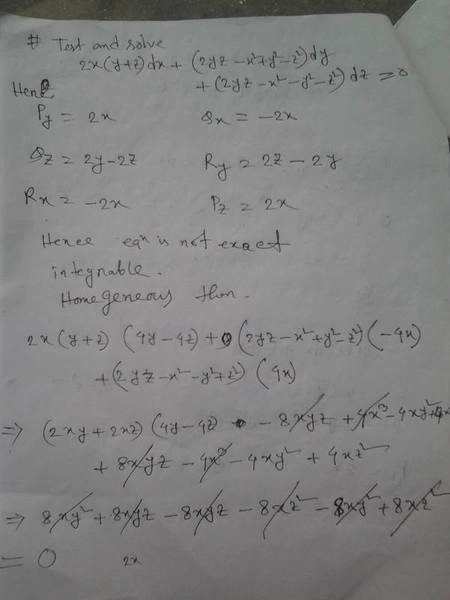 # Test and solve
2x(y+z)dx + (2yz - x²+y²-z²)dy
+ (2yz - x² - y² - z²)dz = 0
Hence
Py = 2x Qx = -2x
Qz = 2y-2z Ry = 2z - 2y
Rx = -2x Pz = 2x
Hence eqn is not exact
integrable.
Homogeneous then.
2x(y+z)(4y-4z) + (2yz-x²+y²-z²)(-4x)
+ (2yz-x²-y²+z²)(4x)
⇒ (2xy+2xz)(4y-4z) - 8xyz + 4x³ - 4xy² + 4x
+ 8xyz - 4x³ - 4xy² + 4xz²
⇒ 8xy² + 8xyz - 8xyz - 8xz² - 8xy² + 8xz²
= 0 2x